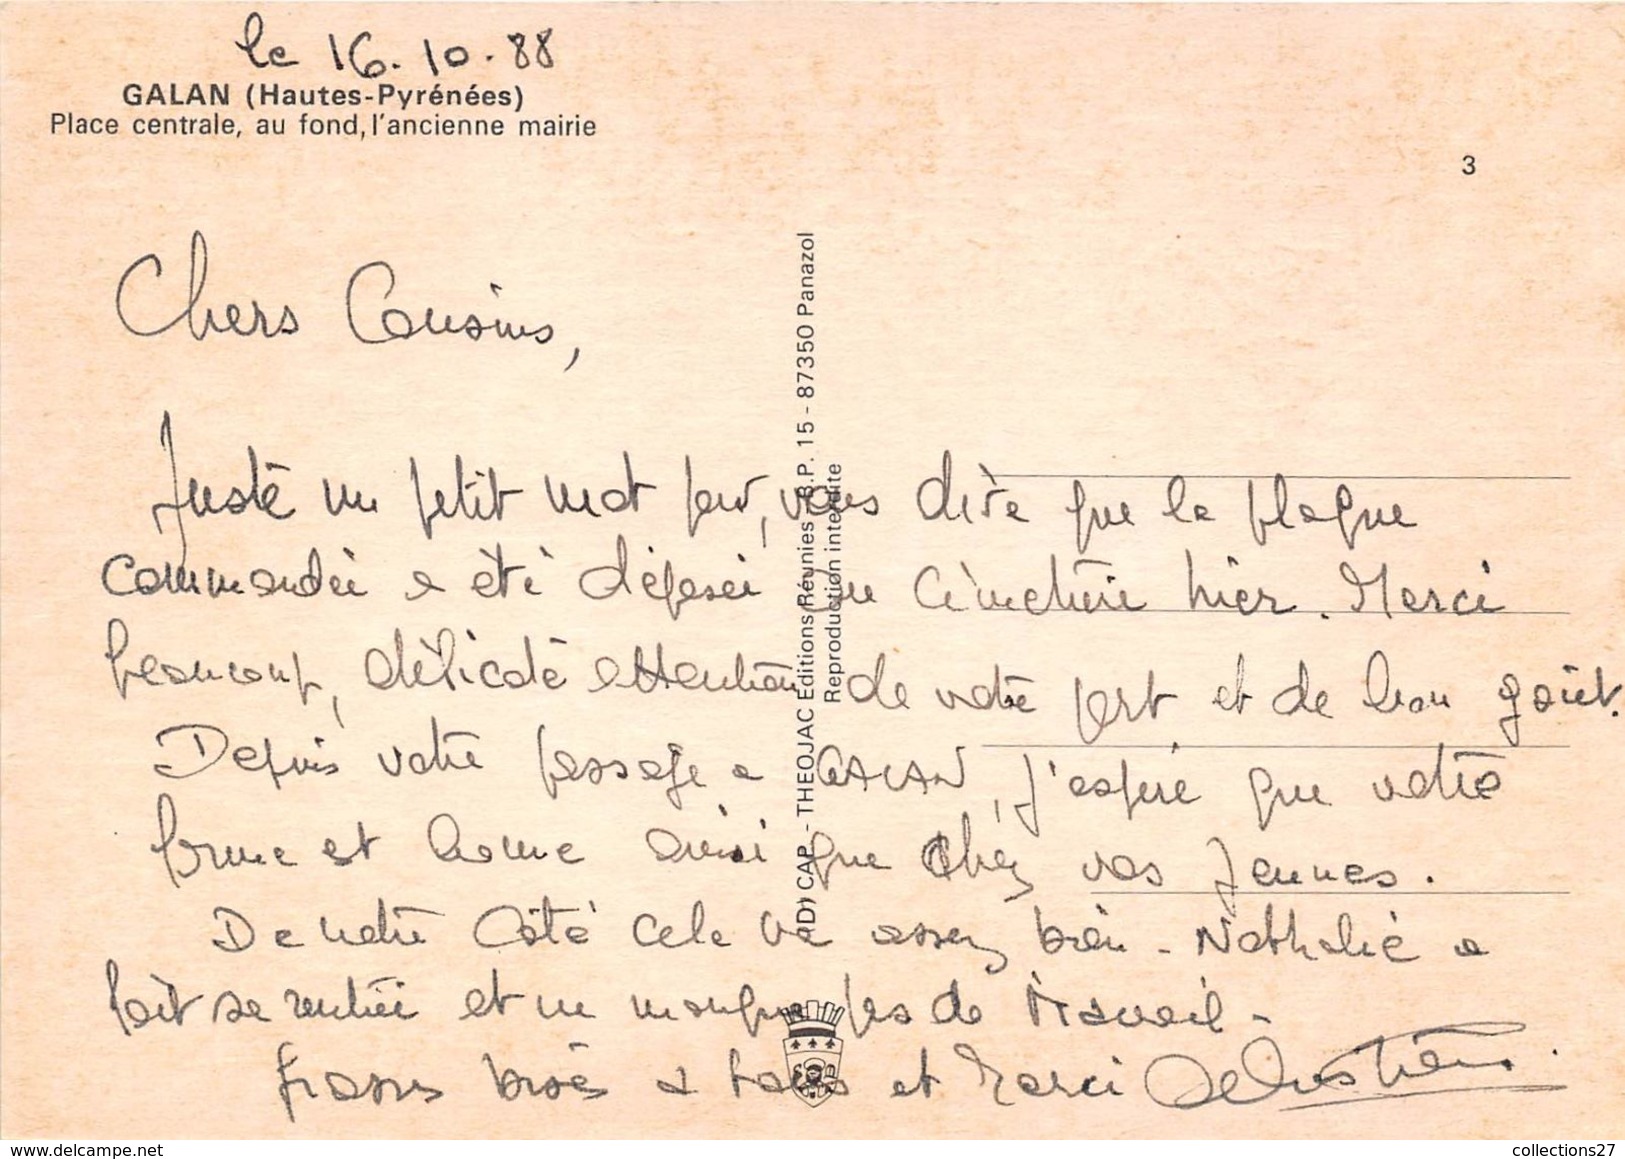 le 16.10.88
GALAN (Hautes-Pyrénées)
Place centrale, au fond, l'ancienne mairie
3
Chers Cousins,
Juste un petit mot pour, vous dire que la plaque
commandée a été déposée au Cimetière hier. Merci
beaucoup, délicate attention de votre part et de bon goût.
Depuis votre passage a GALAN, j'espère que votre
forme est bonne ainsi que chez vos Jeunes.
De notre Côté cela va assez bien - Nathalie a
fait sa rentrée et ne manque pas de Travail -
Grosses bises a tous et Merci Sébastien.
ADI CAP - THEOJAC Editions Réunies B.P. 15 - 87350 Panazol
Reproduction interdite
collections27